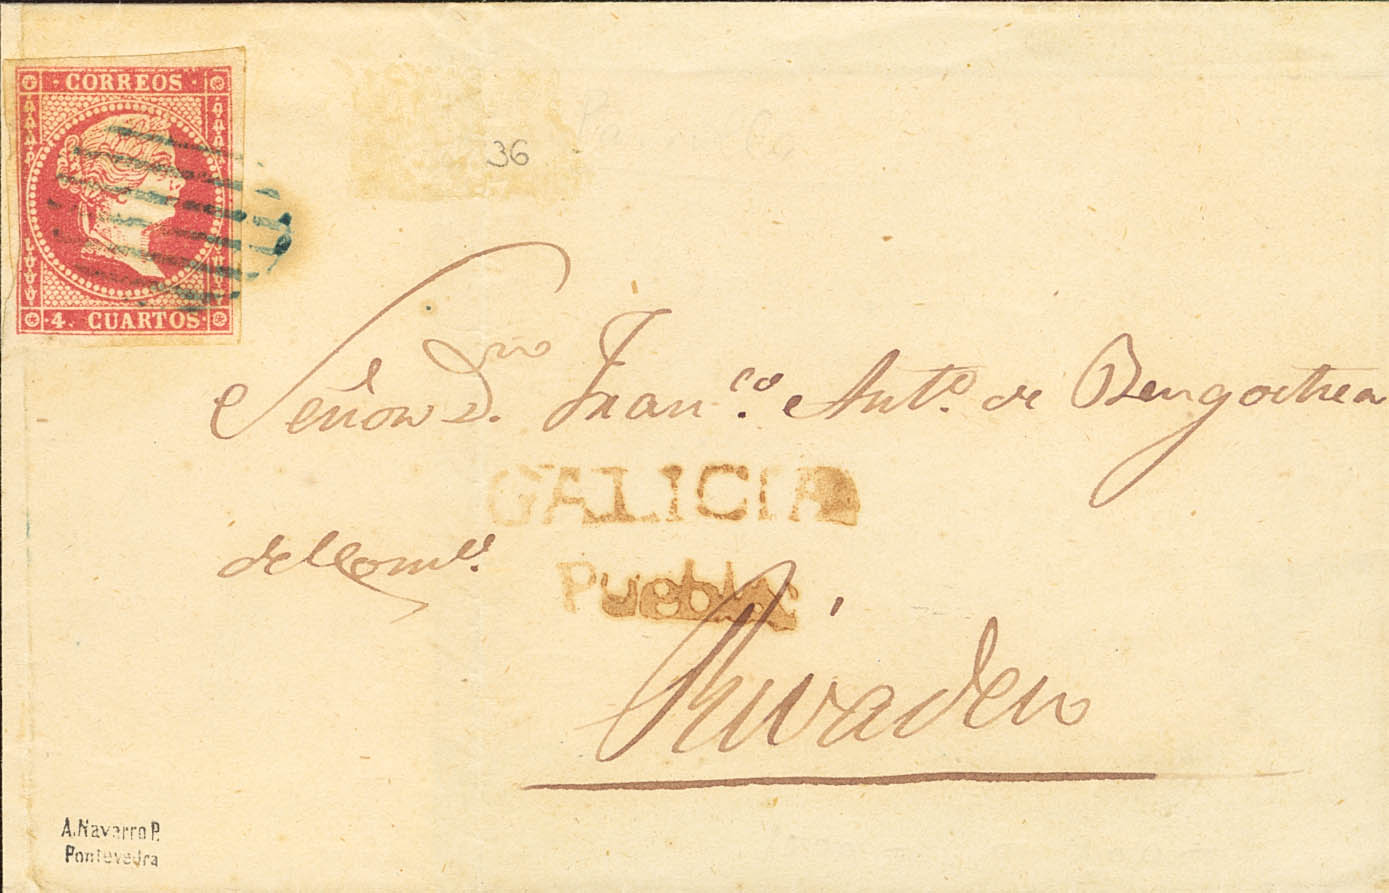 CORREOS
4. CUARTOS
36
Señor Dn. Franco. Anto. de Bengoechea
GALICIA
del Como.
Puebla
Rivadeo
A. Navarro P.
Pontevedra